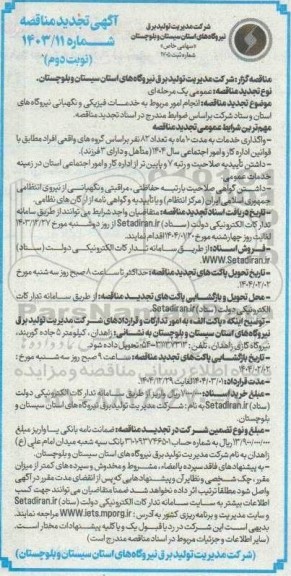 شرکت مدیریت تولید برق
نیروگاه‌های استان سیستان و بلوچستان
«سهامی خاص»
آگهی تجدید مناقصه
شماره ۱۴۰۳/۱۱
(نوبت دوم)
مناقصه گزار: شرکت مدیریت تولید برق نیروگاه‌های استان سیستان و بلوچستان.
نوع تجدید مناقصه: عمومی یک مرحله ای
موضوع تجدید مناقصه: انجام امور مربوط به خدمات فیزیکی و نگهبانی نیروگاه های
استان و ستاد شرکت براساس ضوابط مندرج در اسناد تجدید مناقصه.
مهم‌ترین شرایط عمومی تجدید مناقصه
- واگذاری خدمات به مدت ۱۰ ماه به تعداد ۸۲ نفر براساس گروه های واقعی افراد مطابق با
قوانین اداره کار و امور اجتماعی سال ۱۴۰۴ (متأهل و دارای ۲ فرزند).
- داشتن تأییدیه صلاحیت و رتبه ۷ و پایین تر از اداره کار و امور اجتماعی استان در زمینه
خدمات عمومی
- داشتن گواهی صلاحیت با رتبه حفاظتی، مراقبتی و نگهبانی از نیروی انتظامی
جمهوری اسلامی ایران (مرکز انتظام) و یا تأییدیه و گواهی نامه از ارگان های نظامی.
- تاریخ دریافت اسناد تجدید مناقصه: متقاضیان واجد شرایط می توانند از طریق سامانه
تدارکات الکترونیکی دولت (ستاد) Setadiran.ir از روز دوشنبه مورخ ۱۴۰۳/۱۲/۲۷
لغایت روز چهارشنبه مورخ ۱۴۰۴/۰۱/۲۰ اقدام نمایند.
- فروش اسناد: از طریق سامانه تدارکات الکترونیکی دولت (ستاد)
WWW.Setadiran.ir
- تاریخ تحویل پاکت های تجدید مناقصه: حداکثر تا ساعت ۸ صبح روز سه شنبه مورخ
۱۴۰۴/۰۲/۰۲
- محل تحویل و بازگشایی پاکت های تجدید مناقصه: از طریق سامانه تدارکات
الکترونیکی دولت Setadiran.ir
- توضیح اینکه «پاکت الف» به امور تدارکات و قراردادهای شرکت مدیریت تولید برق
نیروگاه‌های استان سیستان و بلوچستان به نشانی: زاهدان، کیلومتر ۵ جاده کورین،
نیروگاه گازی زاهدان، تلفن: تحویل داده شود.
- تاریخ بازگشایی پاکت های تجدید مناقصه: ساعت ۹ صبح روز سه شنبه مورخ
۱۴۰۴/۰۲/۰۲
- مدت قرارداد: ۱۴۰۴/۰۳/۰۱ لغایت ۱۴۰۴/۱۲/۲۹
- مبلغ خرید اسناد: ریال واریز از طریق سامانه تدارکات الکترونیکی دولت
(ستاد) Setadiran.ir به نام: شرکت مدیریت تولید برق نیروگاه های استان سیستان و
بلوچستان.
- مبلغ و نوع تضمین شرکت در تجدید مناقصه: ضمانت نامه بانکی یا واریز مبلغ
ریال به شماره حساب بانک سپه شعبه میدان امام علی (ع)
زاهدان به نام شرکت مدیریت تولید برق نیروگاه های استان سیستان و بلوچستان.
- به پیشنهادهای فاقد سپرده یا امضاء، مشروط و مخدوش و سپرده های کمتر از میزان
مقرر، چک شخصی و نظایر آن و پیشنهادهایی که پس از انقضای مدت مقرر در آگهی
واصل شود مطلقاً ترتیب اثر داده نخواهد شد ضمناً متقاضیان می توانند جهت کسب
اطلاعات بیشتر به سایت سامانه تدارکات الکترونیکی دولت (ستاد) Setadiran.ir
و سایت مدیریت و برنامه ریزی کشور به آدرس: WWW.iets.mporg.ir مراجعه نمایند.
بدیهی است این شرکت در رد یا قبول یک و یا کلیه پیشنهادات مختار است.
(سایر اطلاعات و جزئیات مربوط در اسناد مناقصه مندرج است)
(شرکت مدیریت تولید برق نیروگاه‌های استان سیستان و بلوچستان)